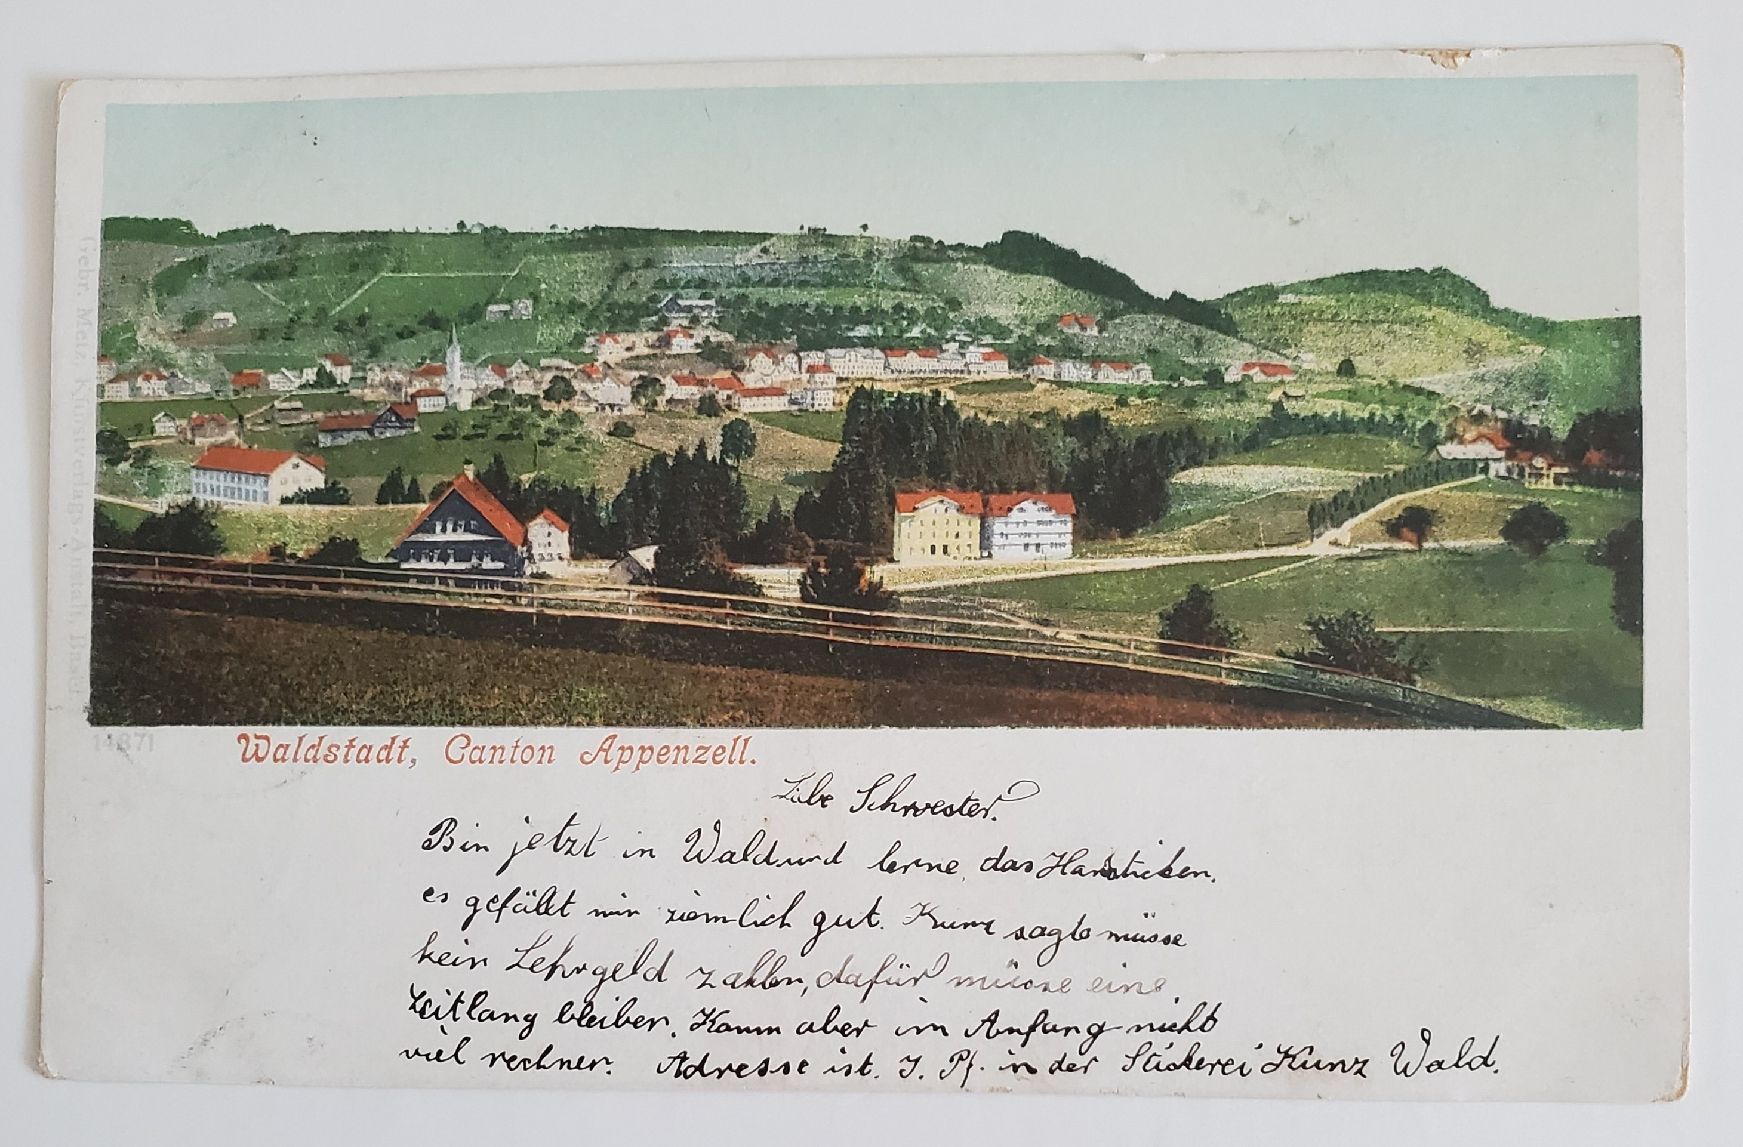 Gebr. Metz, Kunstverlags-Anstalt, Basel
14871
Waldstadt, Canton Appenzell.
Liebe Schwester.
Bin jetzt in Wald und lerne das Handsticken.
es gefällt mir ziemlich gut. Kunz sagte müsse
kein Lehrgeld zahlen, dafür müsse eine
Zeitlang bleiben. Kann aber im Anfang nicht
viel rechnen. Adresse ist. J. Pf. in der Stickerei Kunz Wald.